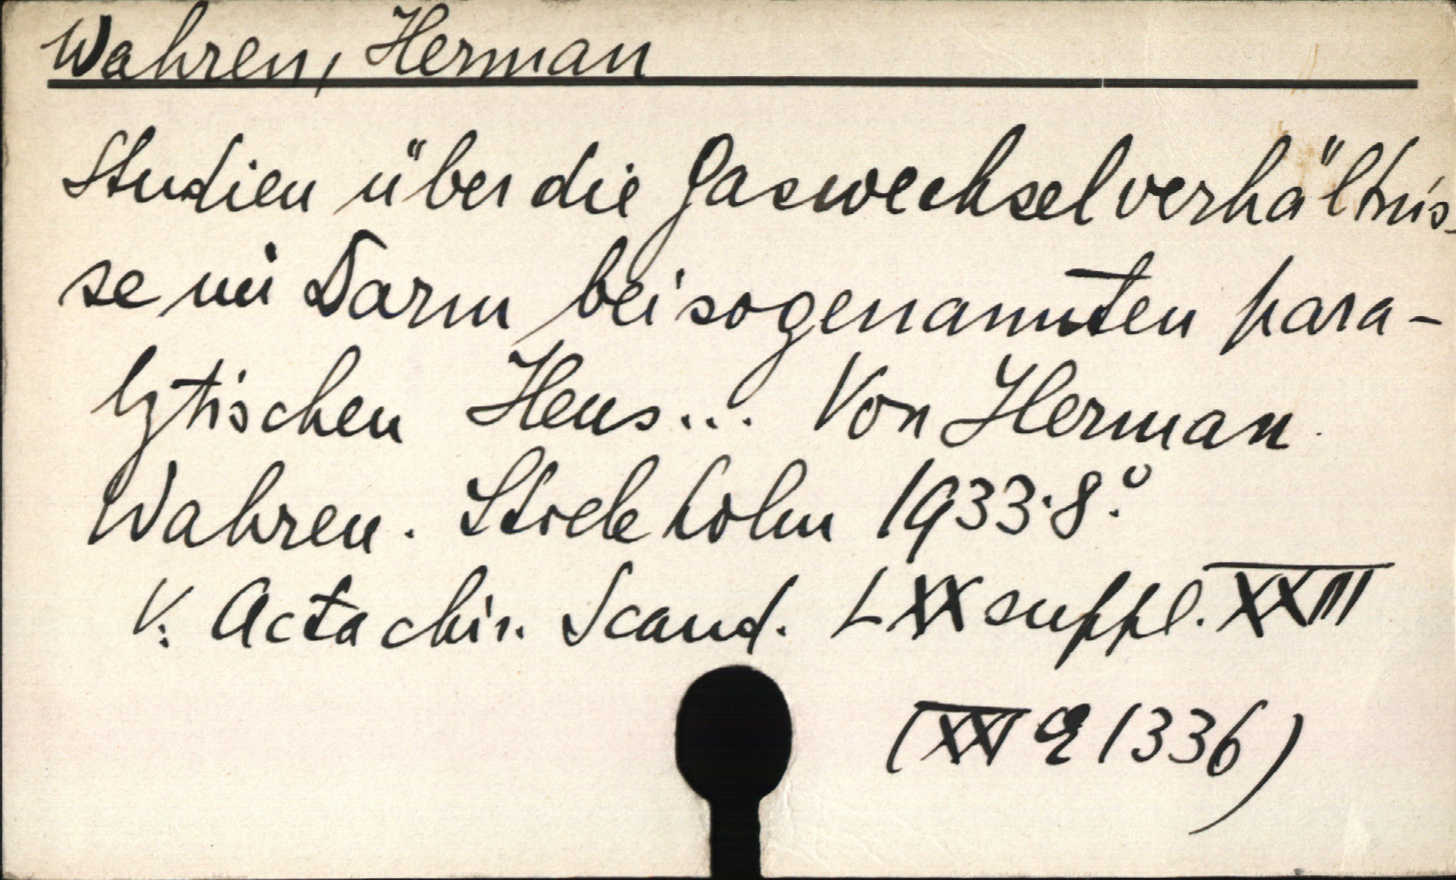 Wahren, Herman
Studien über die Gaswechselverhältnis-
se im Darm bei sogenannten para-
lytischen Ileus... Von Herman
Wahren. Stockholm 1933. 8.º
V. Acta chir. Scand. LXX suppl. XXIII
(XXI 1336)